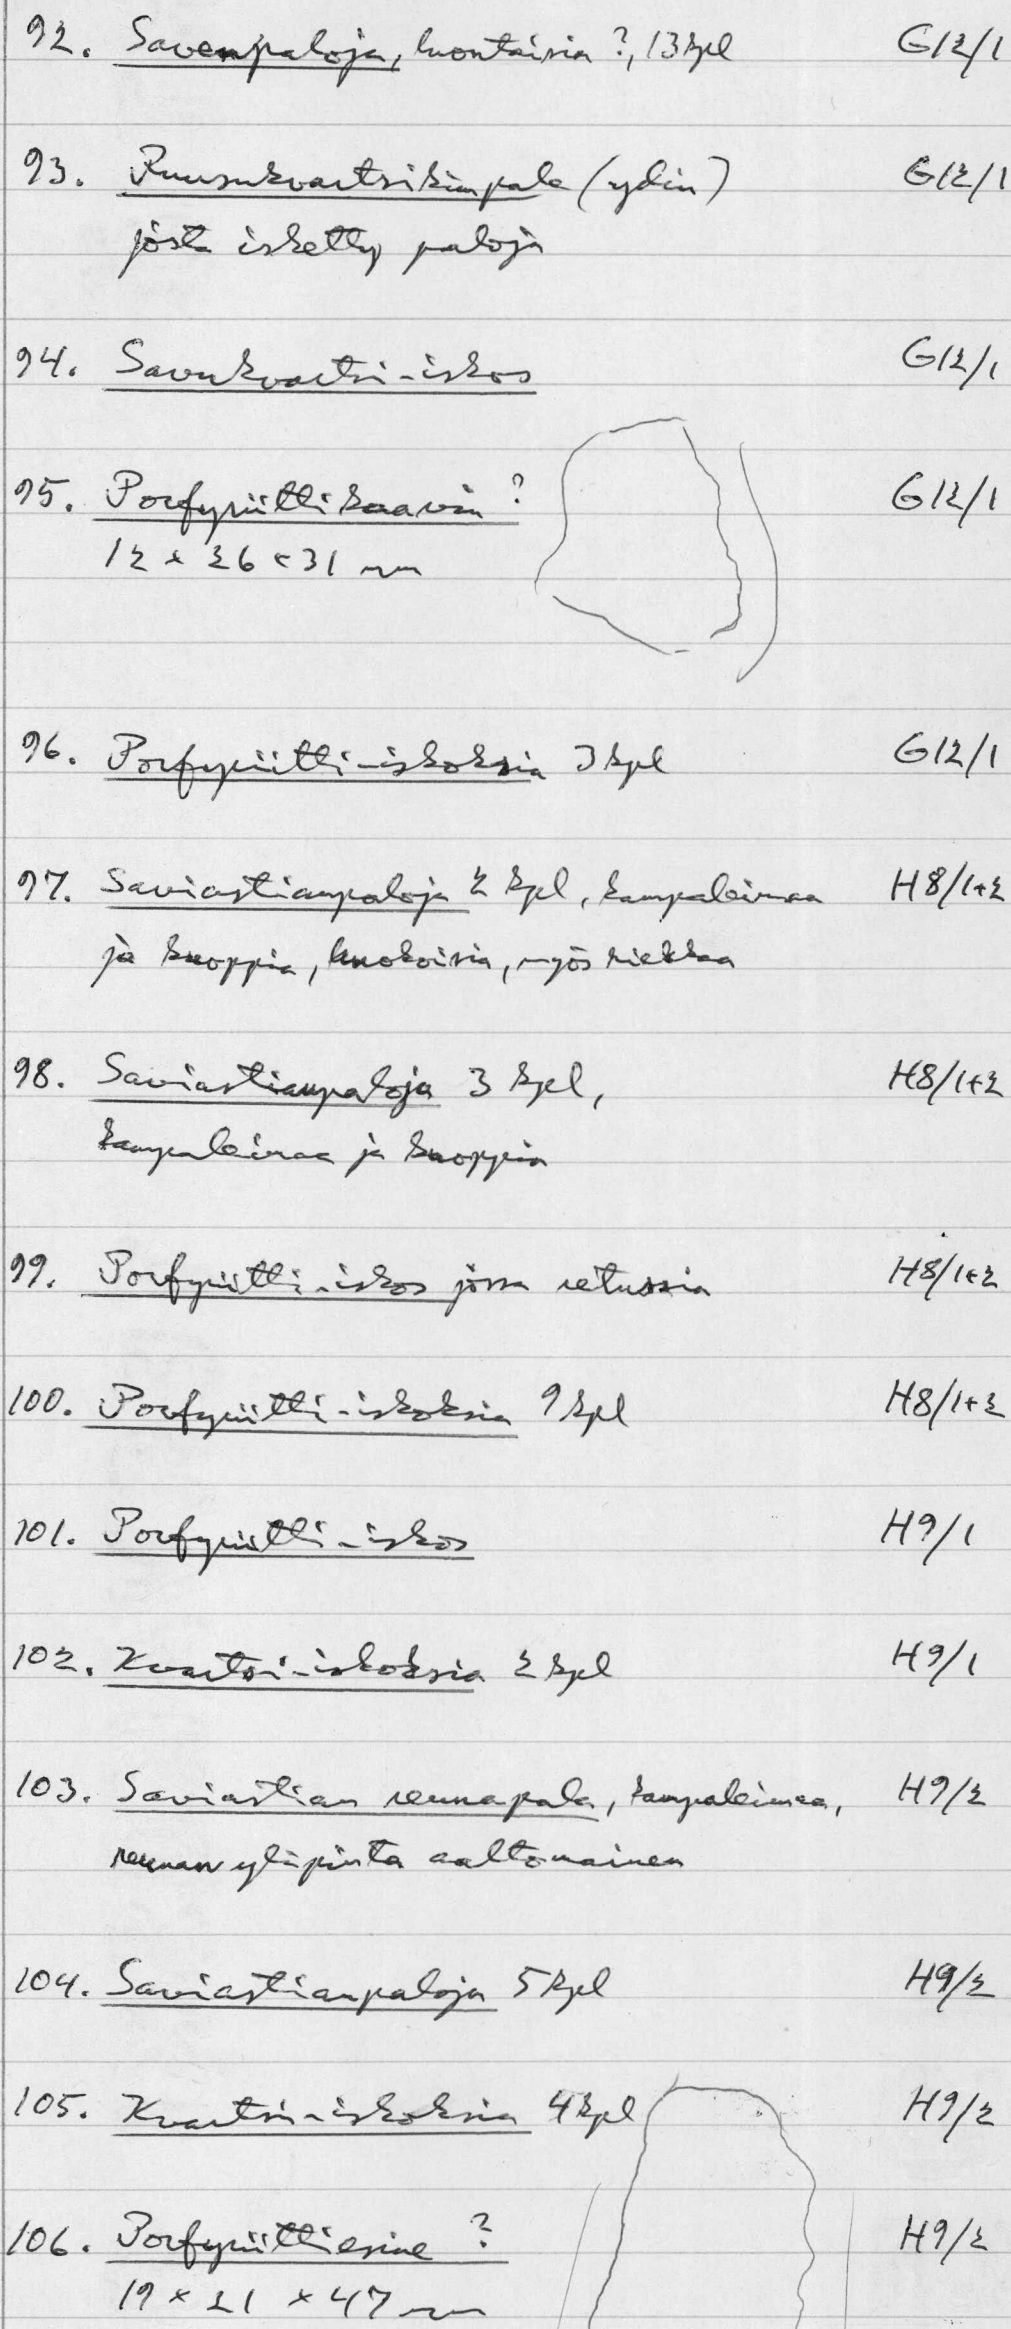 92. Savenpaloja, luontaisia?, 13 kpl G12/1
93. Ruusukvartsikimpale (ydin) G12/1
josta isketty paloja
94. Savukvartsi-iskos G12/1
95. Porfyriittikaavin? G12/1
12 x 26 x 31 mm
96. Porfyriitti-iskoksia 3 kpl G12/1
97. Saviastianpaloja 2 kpl, kampaleimaa H8/1+2
ja kuoppia, huokoisia, myös hiekkaa
98. Saviastianpaloja 3 kpl, H8/1+2
kampaleimaa ja kuoppia
99. Porfyriitti-iskos jossa retussia H8/1+2
100. Porfyriitti-iskoksia 9 kpl H8/1+2
101. Porfyriitti-iskos H9/1
102. Kvartsi-iskoksia 2 kpl H9/1
103. Saviastian reunapala, kampaleimaa, H9/2
reunan yläpinta aaltomainen
104. Saviastianpaloja 5 kpl H9/2
105. Kvartsi-iskoksia 4 kpl H9/2
106. Porfyriittiesine? H9/2
19 x 21 x 47 mm